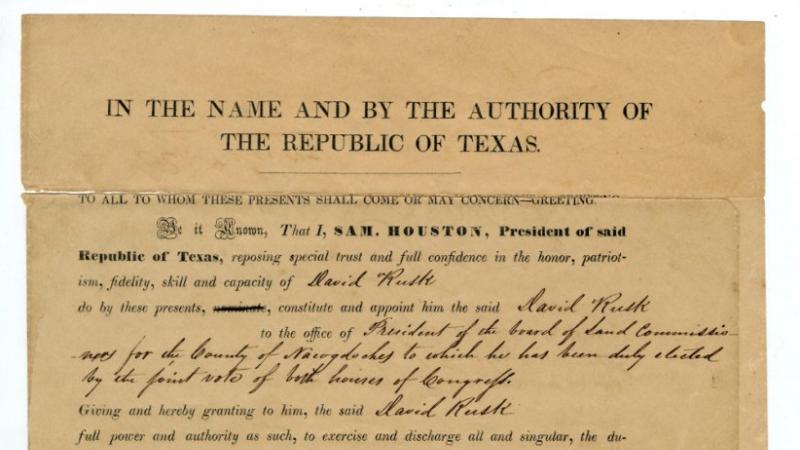 IN THE NAME AND BY THE AUTHORITY OF
THE REPUBLIC OF TEXAS.
TO ALL TO WHOM THESE PRESENTS SHALL COME OR MAY CONCERN—GREETING.
Be it Known, That I, SAM. HOUSTON, President of said
Republic of Texas, reposing special trust and full confidence in the honor, patriot-
ism, fidelity, skill and capacity of David Rusk
do by these presents, nominate, constitute and appoint him the said David Rusk
to the office of President of the board of Land Commissio-
ners for the County of Nacogdoches to which he has been duly elected
by the joint vote of both houses of Congress.
Giving and hereby granting to him, the said David Rusk
full power and authority as such, to exercise and discharge all and singular, the du-